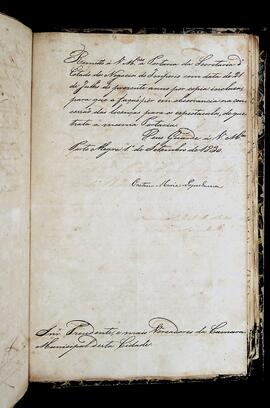 Remetto à V. Mces. Portaria da Secretaria d'
Estado do Negocios do Imperio com data de 21
de Julho do presente anno por copia incluso,
para que a fação pôr em observancia na con-
cessão das licenças para os espectaculos, de que
trata a mesma Portaria.
Deos Guarde à V. Mces.
Porto Alegre 1º de Setembro de 1830.
Caetano Maria Lopes Gama
Snrs. Presidente, e mais Vereadores da Camara
Municipal desta Cidade